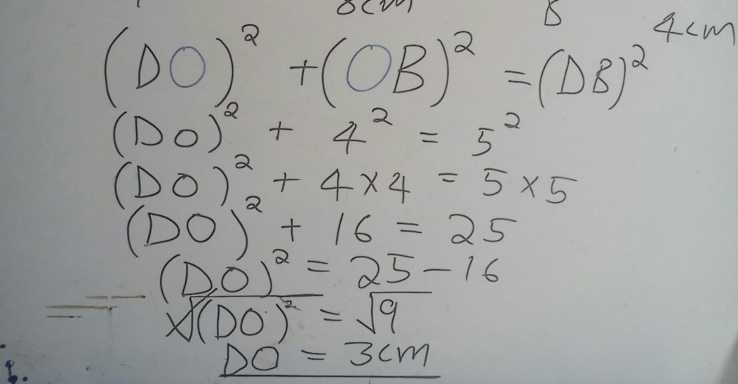 8cm B 4cm
(DO)² + (OB)² = (DB)²
(DO)² + 4² = 5²
(DO)² + 4×4 = 5×5
(DO)² + 16 = 25
(DO)² = 25 - 16
√(DO)² = √9
DO = 3cm